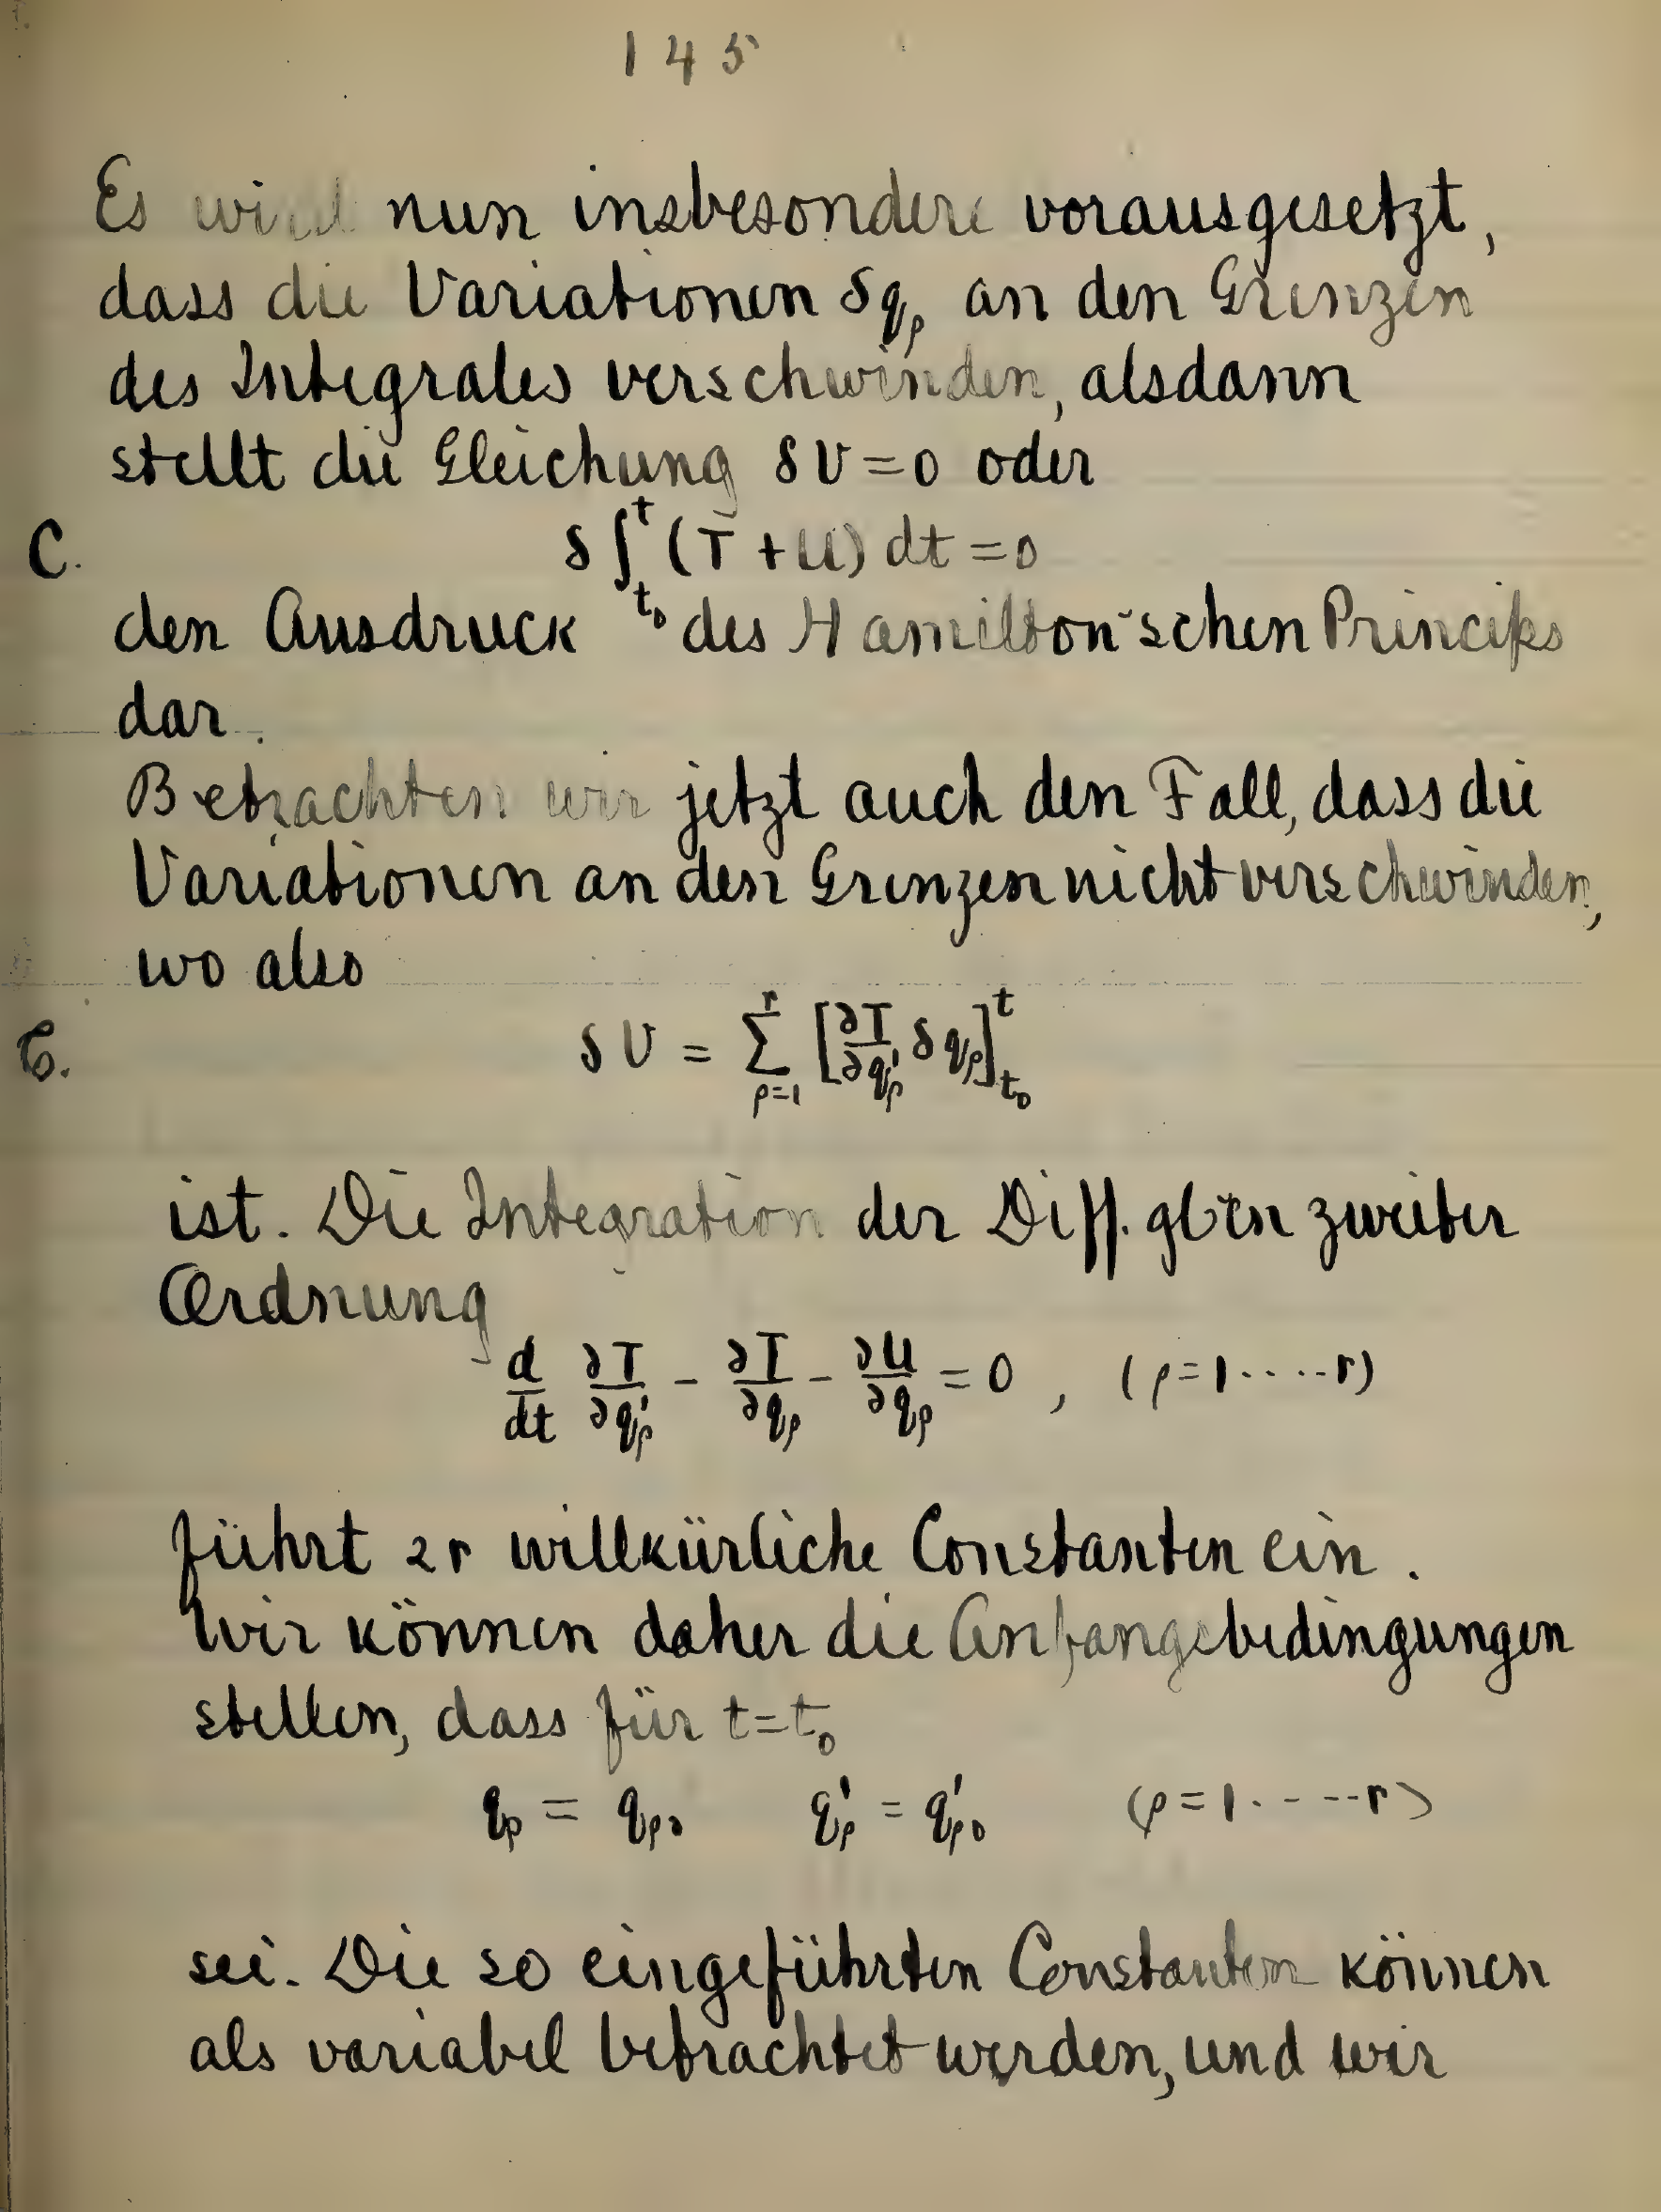 145
Es wird nun insbesondere vorausgesetzt,
dass die Variationen δq_ρ an den Grenzen
des Integrales verschwinden, alsdann
stellt die Gleichung δV=0 oder
C. δ∫_{t_0}^{t} (T+U) dt = 0
den Ausdruck des Hamilton'schen Princips
dar.
Betrachten wir jetzt auch den Fall, dass die
Variationen an den Grenzen nicht verschwinden,
wo also
δV = ∑_{ρ=1}^{r} [∂T/∂q'_ρ δq_ρ]_{t_0}^{t}
ist. Die Integration der Diff. glən zweiter
Ordnung
d/dt ∂T/∂q'_ρ - ∂T/∂q_ρ - ∂U/∂q_ρ = 0, (ρ=1.....r)
führt 2r willkürliche Constanten ein.
Wir können daher die Anfangsbedingungen
stellen, dass für t=t_0
q_ρ = q_ρ0 q'_ρ = q'_ρ0 (ρ=1.----r)
sei. Die so eingeführten Constanten können
als variabel betrachtet werden, und wir